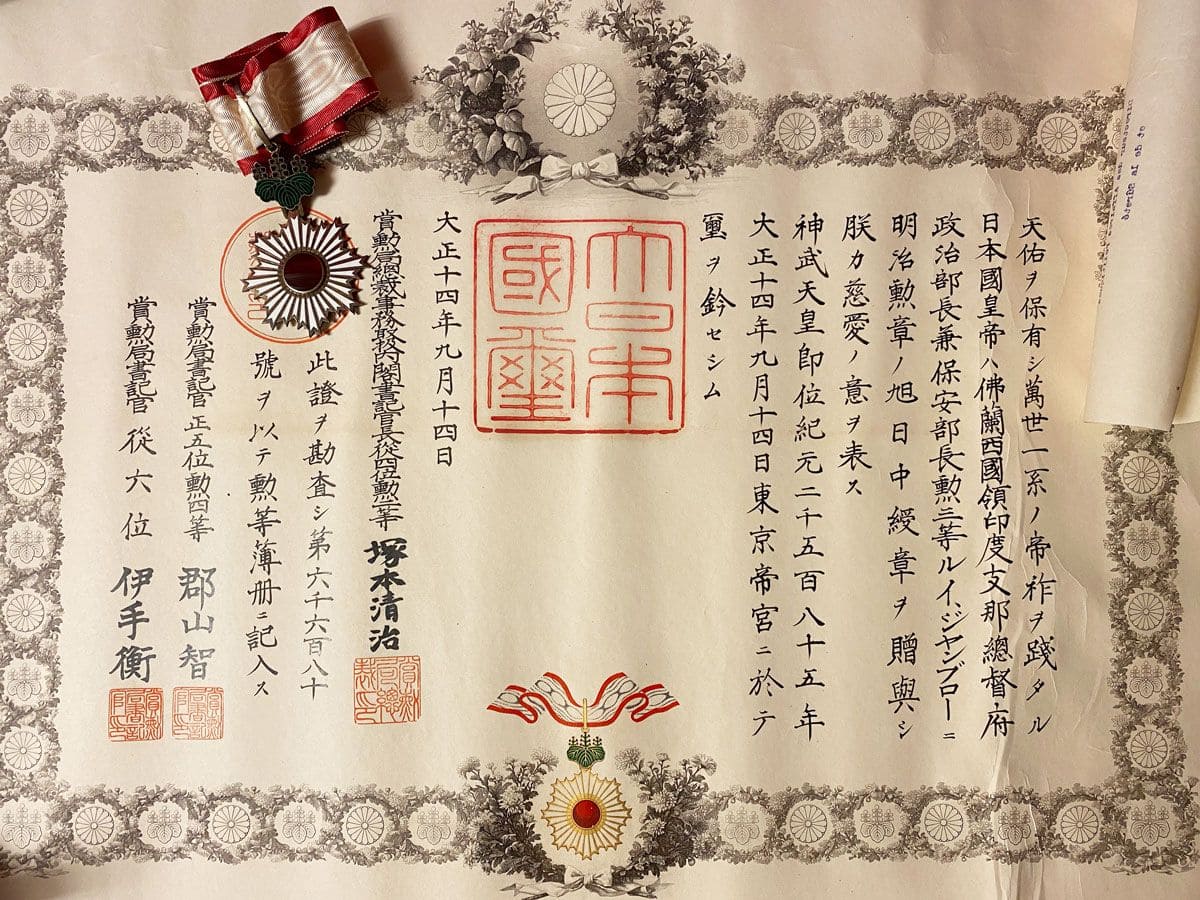 天佑ヲ保有シ萬世一系ノ帝祚ヲ踐タル
日本國皇帝ハ佛蘭西國領印度支那總督府
政治部長兼保安部長勲三等ルイ、ジヤンブローニ
明治勲章ノ旭日中綬章ヲ贈與シ
朕カ慈愛ノ意ヲ表ス
神武天皇卽位紀元二千五百八十五年
大正十四年九月十四日東京帝宮ニ於テ
璽ヲ鈐セシム
大日本
國璽
大正十四年九月十四日
賞勲局總裁事務取扱內閣書記官長從四位勲二等塚本清治
此證ヲ勘査シ第六千六百八十
號ヲ以テ勲等簿册ニ記入ス
賞勲局書記官正五位勲四等郡山智
賞勲局書記官從六位伊手衡